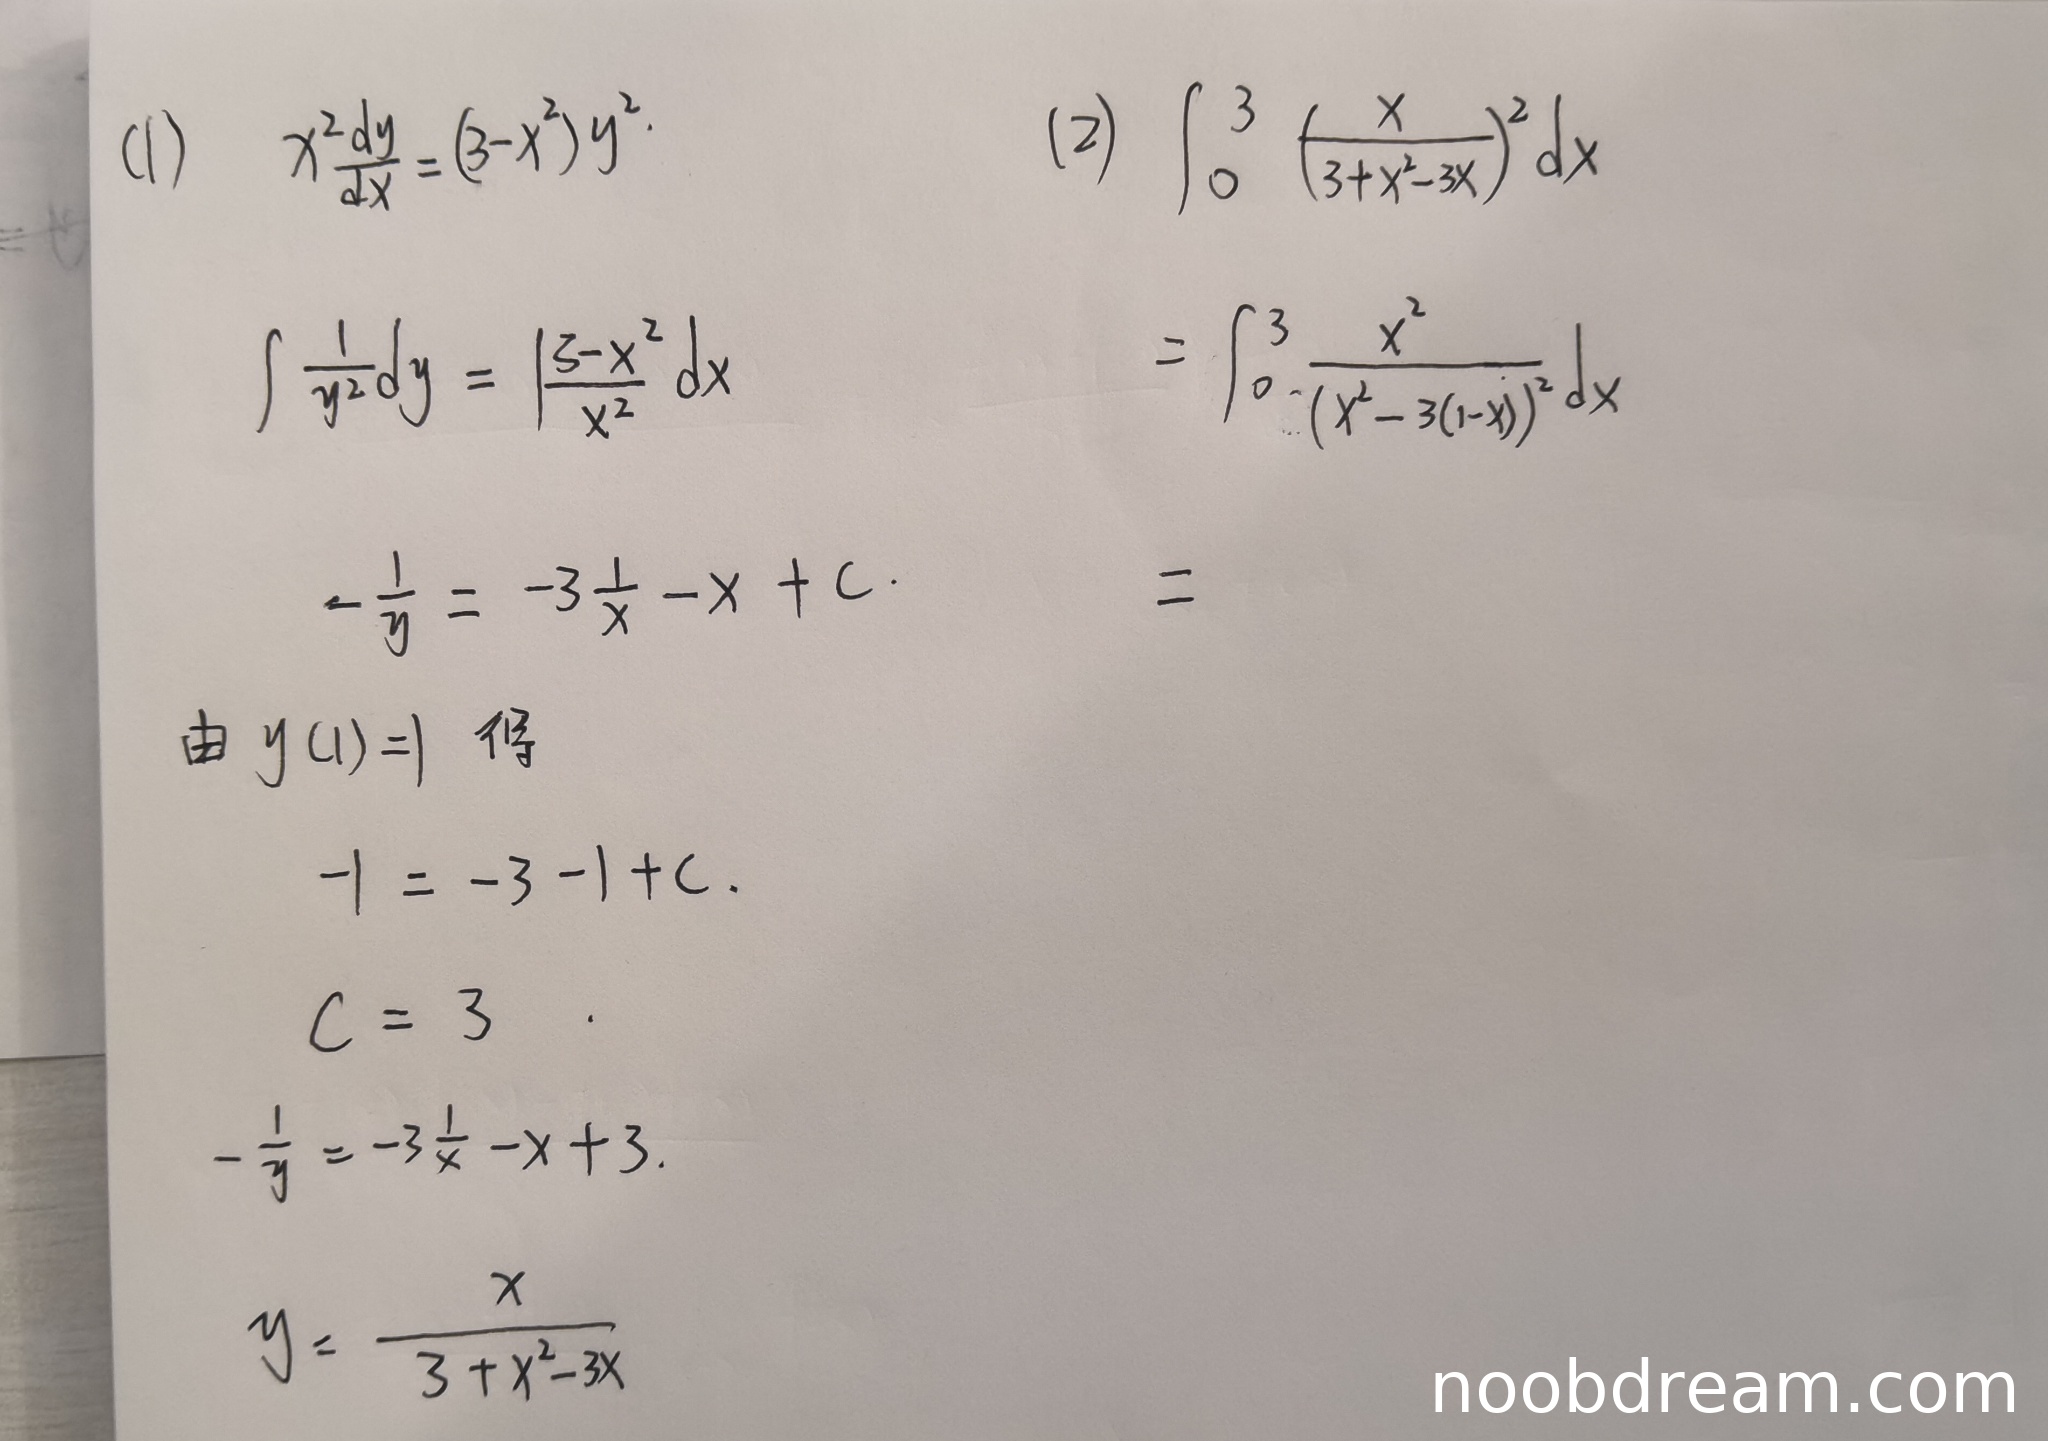 (1) x² dy/dx = (3-x²) y².
∫ 1/y² dy = ∫ 3-x²/x² dx
- 1/y = -3 1/x - x + C.
由 y(1)=1 得
-1 = -3 -1 + C.
C = 3 .
- 1/y = -3 1/x - x + 3.
y = x/(3+x²-3x)
(2) ∫₀³ (x/(3+x²-3x))² dx
= ∫₀³ x²/(x²-3(1-x))² dx
=
noobdream.com